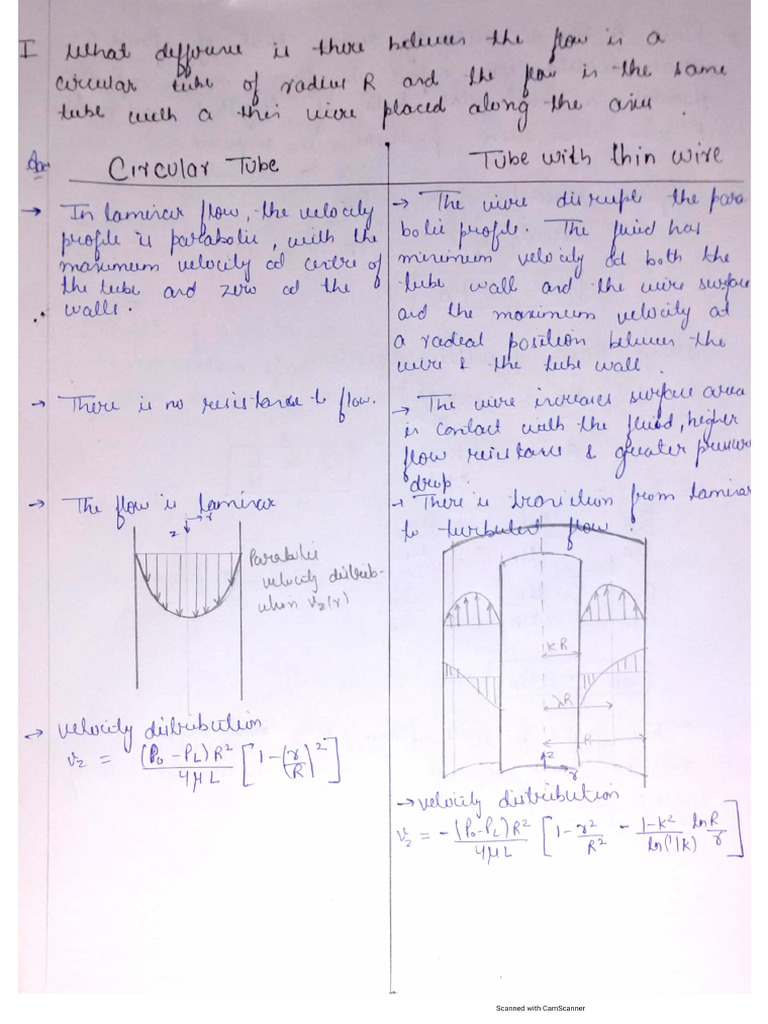 I What difference is there between the flow is a
circular tube of radius R and the flow in the same
tube with a thin wire placed along the axis.
Ans Circular Tube
→ In laminar flow, the velocity
profile is parabolic, with the
maximum velocity at centre of
the tube and zero at the
walls.
→ There is no resistance to flow.
→ The flow is laminar
z r
Parabolic
velocity distrib-
ution vz(r)
→ velocity distribution
vz = (P0 - PL) R² / 4μL [1 - (r/R)²]
Tube with thin wire
→ The wire disrupts the para
bolic profile. The fluid has
minimum velocity at both the
tube wall and the wire surface
and the maximum velocity at
a radial position between the
wire & the tube wall.
→ The wire increases surface area
in contact with the fluid, higher
flow resistance & greater pressure
drop.
→ There is transition from laminar
to turbulent flow.
kR
λR
R
z
r
→ velocity distribution
vz = - (P0 - PL) R² / 4μL [1 - r²/R² - 1-k²/ln(1/k) ln R/r]
Scanned with CamScanner